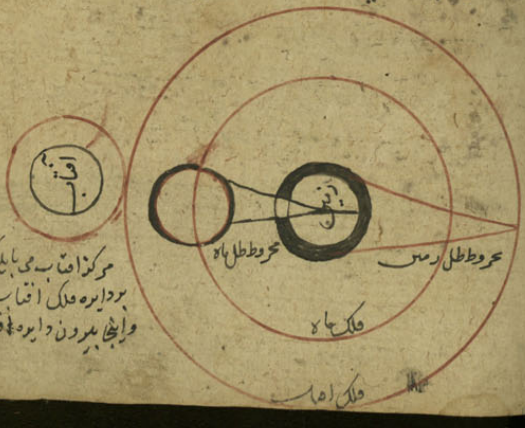 آفتاب
زمین
مخروط ظل ماه
مخروط ظل زمین
فلک ماه
فلک افتاب
مرکز افتاب می
بر دایره فلک افتاب
و اینجا بیرون دایره